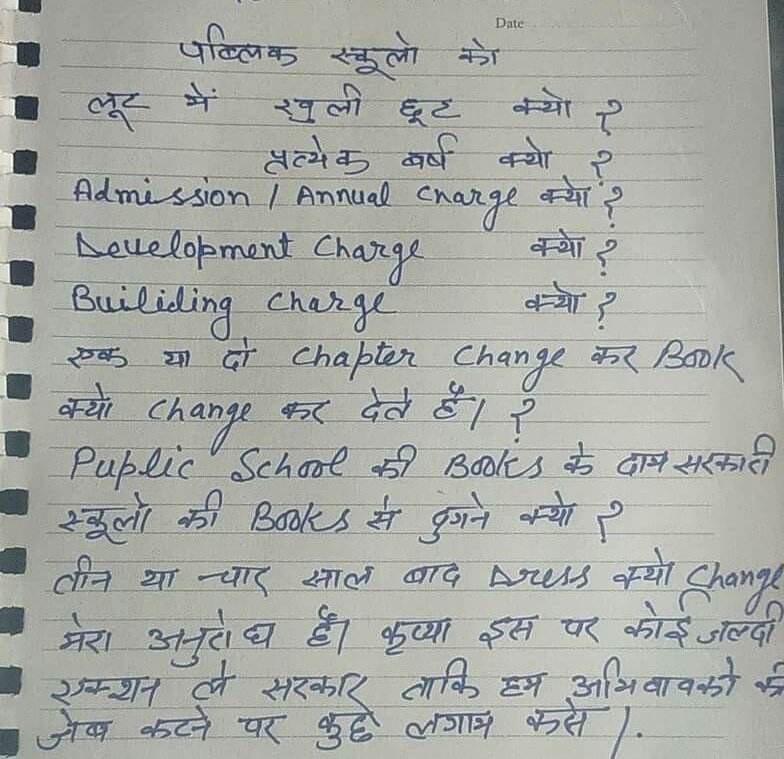 Date
पब्लिक स्कूलो को
लूट में खुली छूट क्यो ?
प्रत्येक बर्ष क्यो ?
Admission / Annual Charge क्यो ?
Development Charge क्यो ?
Builiding Charge क्यो ?
एक या दो Chapter Change कर Book
क्यो Change कर देते हैं। ?
Puplic School की Books के दाम सरकारी
स्कूलो की Books से दुगने क्यो ?
तीन या चार साल बाद Dress क्यो Change
मेरा अनुरोध हैं। कृप्या इस पर कोई जल्दी
एक्शन ले सरकार ताकि हम अभिवावको की
जेब कटने पर कुछ लगाम कसे।.